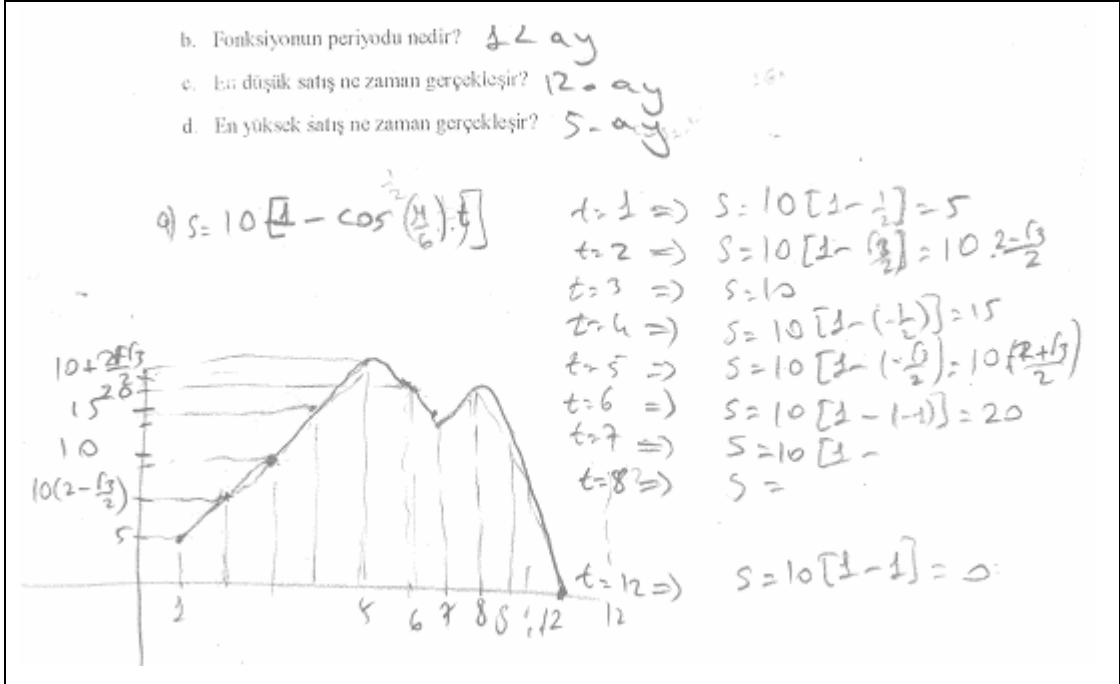 b. Fonksiyonun periyodu nedir? 12 ay
c. En düşük satış ne zaman gerçekleşir? 12. ay
d. En yüksek satış ne zaman gerçekleşir? 5. ay
a) S = 10 [1 - cos (π/6).t]
t=1 => S = 10 [1 - 1/2] = 5
t=2 => S = 10 [1 - √3/2] = 10 . 2-√3/2
t=3 => S = 10
t=4 => S = 10 [1 - (-1/2)] = 15
t=5 => S = 10 [1 - (-√3/2) = 10 (2+√3/2)
t=6 => S = 10 [1 - (-1)] = 20
t=7 => S = 10 [1 -
t=8 => S =
t=12 => S = 10 [1 - 1] = 0
20
15
10
10(2-√3/2)
5
1 5 6 7 8 12 12